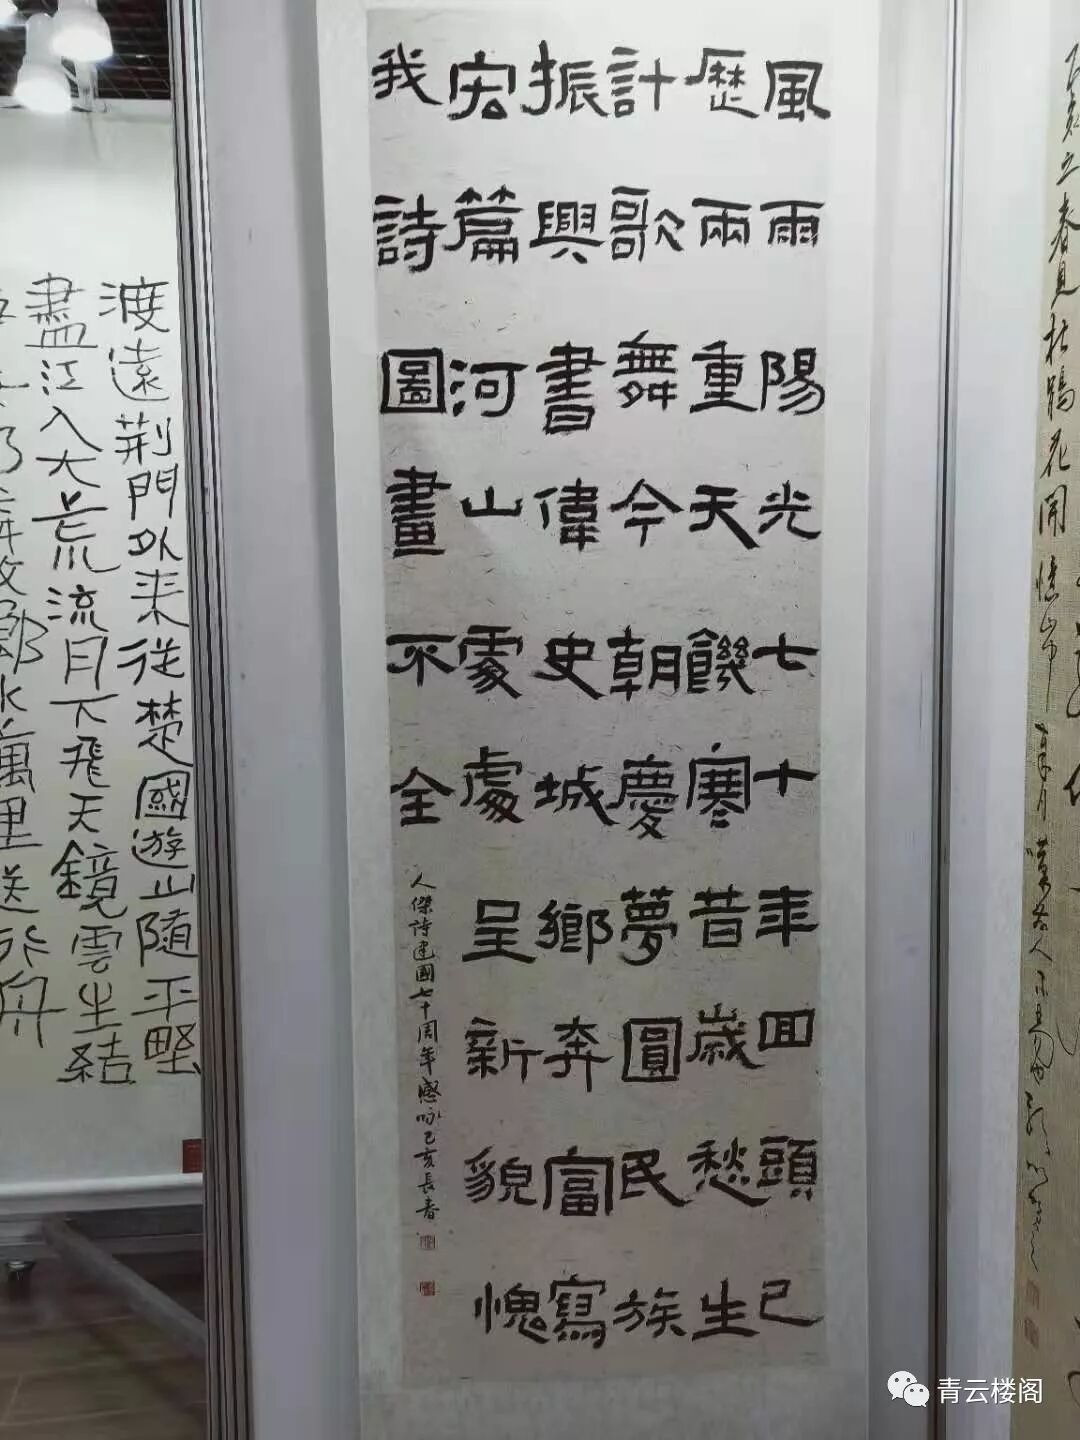 風雨陽光七十年回頭已
歷兩重天饑寒昔歲愁生
計歌舞今朝慶夢圓民族
振興書偉史城鄉奔富寫
宏篇河山處處呈新貌愧
我詩圖畫不全
人傑詩建國七十周年感咏己亥長春
渡遠荊門外來從楚國遊山隨平野
盡江入大荒流月下飛天鏡雲生結
故鄉水萬里送行舟
立春見杜鵑花開憶
青云楼阁